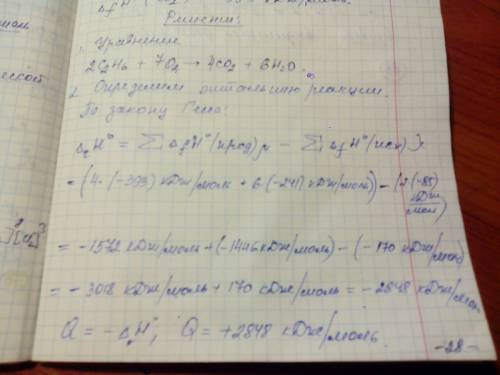 Решение:
1. Уравнение
2C₂H₆ + 7O₂ → 4CO₂ + 6H₂O.
2. Определяем энтальпию реакции.
По закону Гесса:
ΔᵣH° = ∑ ΔfH°(прод)н − ∑ ΔfH°(исх)х
= (4·(−393) кДж/моль + 6·(−241) кДж/моль) − (2(−85) кДж/моль)
= −1572 кДж/моль + (−1446 кДж/моль) − (−170 кДж/моль)
= −3018 кДж/моль + 170 кДж/моль = −2848 кДж/моль
Q = −ΔᵣH°; Q = +2848 кДж/моль.
-28-